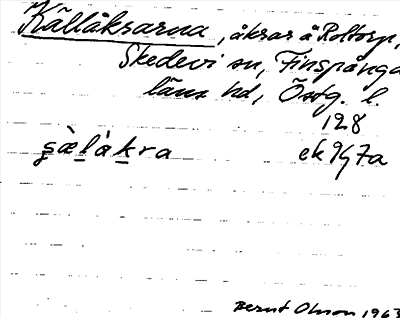 Källåkrarna, åkrar å Roltorp,
Skedevi sn, Finspånga
läns hd, Östg. l.
128
s̨æ̀làkra ek 9G7a
Bernt Olsson 1963